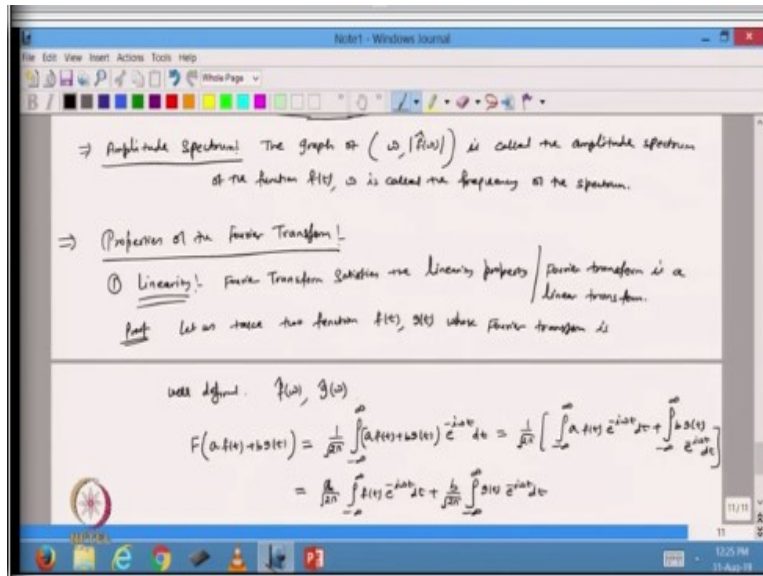 Note1 - Windows Journal
File Edit View Insert Actions Tools Help
Whole Page
B I
⇒ Amplitude Spectrum! The graph of (ω, |f̂(ω)|) is called the amplitude spectrum
of the function f(t), ω is called the frequency of the spectrum.
⇒ Properties of the Fourier Transform!
① Linearity! Fourier Transform satisfies the linearity property / Fourier transform is a
linear transform.
Proof Let us take two function f(t), g(t) whose Fourier transform is
well defined. f̂(ω), ĝ(ω)
F(a f(t)+b g(t)) = 1/√2π ∫_{-∞}^{∞} (a f(t)+b g(t)) e^{-iωt} dt = 1/√2π [ ∫_{-∞}^{∞} a f(t) e^{-iωt} dt + ∫_{-∞}^{∞} b g(t) e^{-iωt} dt ]
= a/√2π ∫_{-∞}^{∞} f(t) e^{-iωt} dt + b/√2π ∫_{-∞}^{∞} g(t) e^{-iωt} dt
11/11
NPTEL
11
12:25 PM
31-Aug-19